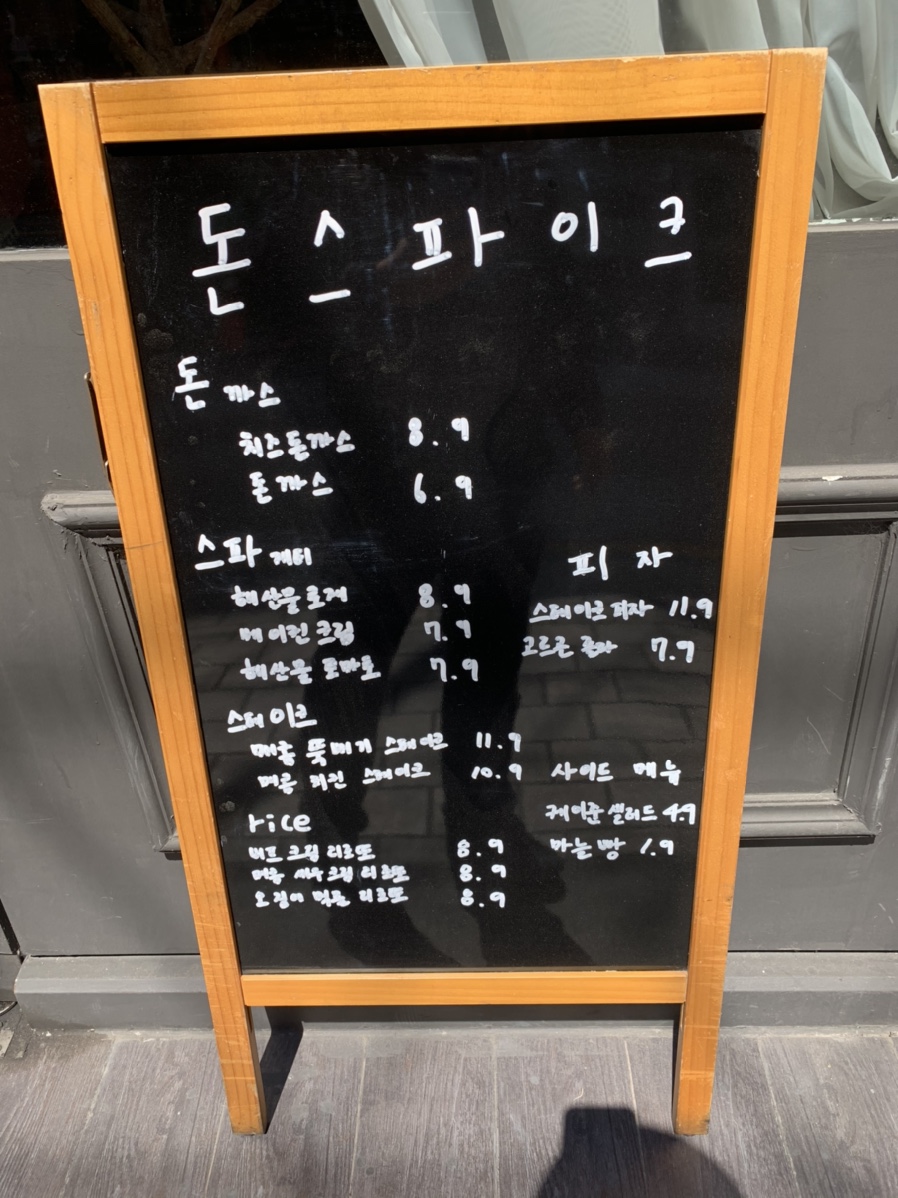 돈 스 파 이 크
돈 까스
치즈돈까스 8.9
돈까스 6.9
스파 게티
해산물로제 8.9
베이컨크림 7.9
해산물 토마토 7.9
스테이크
매콤 뚝배기 스테이크 11.9
매콤 치킨 스테이크 10.9
rice
비프 크림 리조또 8.9
매콤 새우 크림 리조또 8.9
오징어 먹물 리조또 8.9
피 자
스테이크 피자 11.9
고르곤 졸라 7.9
사이드 메뉴
케이준 샐러드 4.9
마늘빵 1.9